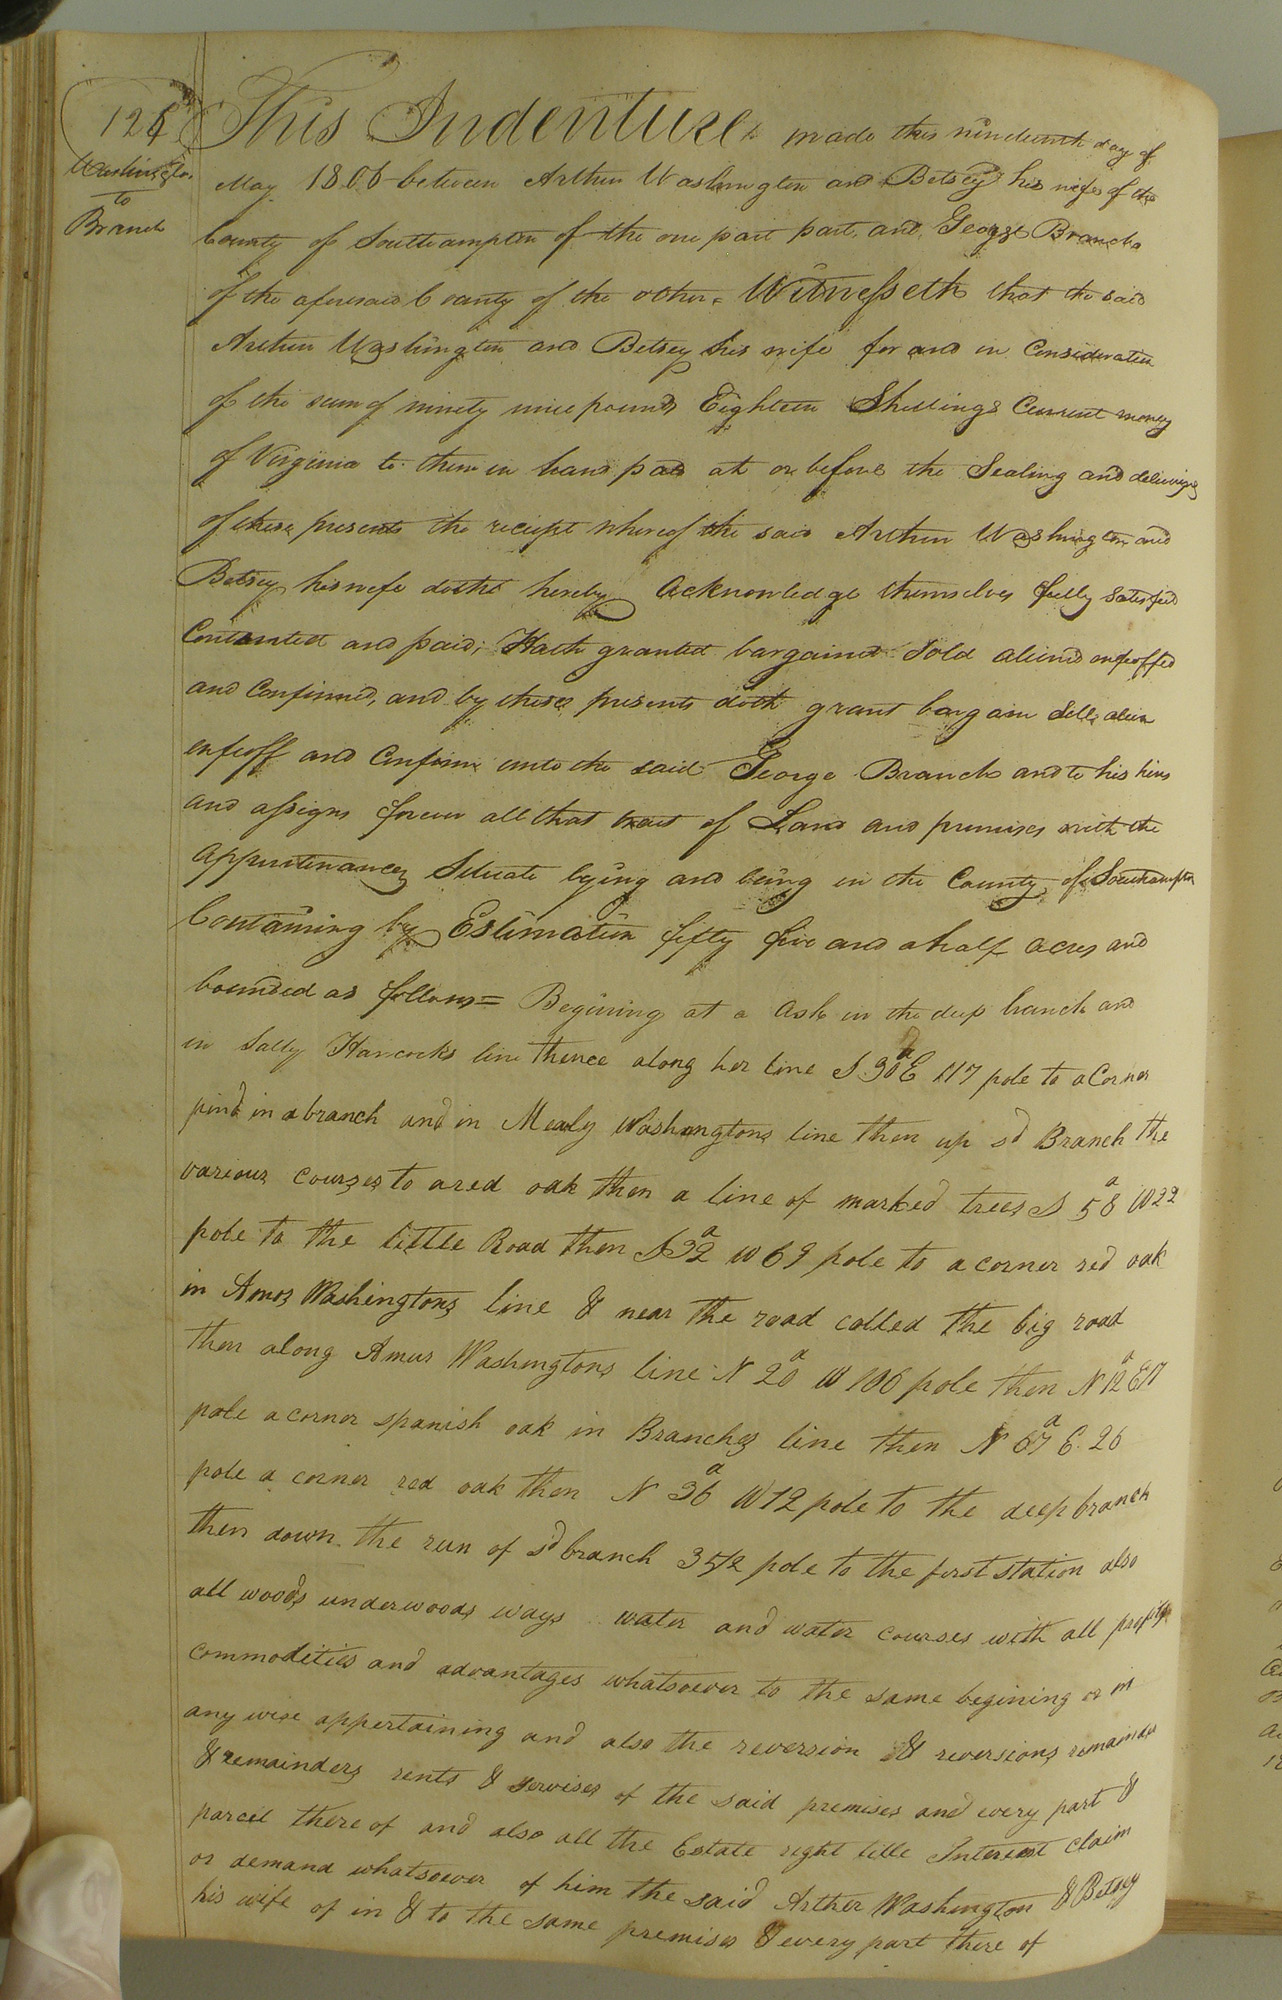 126
Washington
to
Branch
This Indenture made this nineteenth day of
May 1806 between Arthur Washington and Betsey his wife of the
County of Southampton of the one part part, and George Branch
of the aforesaid County of the other = Witnesseth that the said
Arthur Washington and Betsey his wife for and in Consideration
of the sum of ninety nine pounds Eighteen Shillings Current money
of Virginia to them in hand paid at or before the Sealing and delivering
of these presents the receipt whereof the said Arthur Washington and
Betsey his wife doth hereby acknowledge themselves fully satisfied
Contented and paid; Hath granted bargained Sold aliend enfeoffed
and Confirmed, and by these presents doth grant bargain Sell alien
enfeoff and Confirm unto the said George Branch and to his heirs
and assigns forever all that tract of Land and premises with the
appurtenances Situate lying and being in the County of Southampton
Containing by Estimation fifty five and a half acres and
bounded as follows = Begining at a Ash in the deep branch and
in Sally Hancocks line thence along her line S 30 E 117 pole to a Corner
pine in a branch and in Mealy Washingtons line then up sd Branch the
vareous courses to a red oak then a line of marked trees S 58 W 22
pole to the little Road then S 32 W 69 pole to a corner red oak
in Amos Washingtons line & near the road called the big road
then along Amus Washingtons line N 20 W 106 pole then N 12 E 17
pole a corner spanish oak in Branches line then N 67 E. 26
pole a corner red oak then N 36 W 12 pole to the deep branch
then down the run of sd branch 35/2 pole to the first station also
all woods underwoods ways water and water courses with all profits
commodities and advantages whatsoever to the same begining or in
any wise appertaining and also the reversion & reversions remainder
& remainders rents & servises of the said premises and every part &
parcel there of and also all the Estate right title Interest claim
or demand whatsoever of him the said Arther Washington & Betsey
his wife of in & to the same premises & every part there of